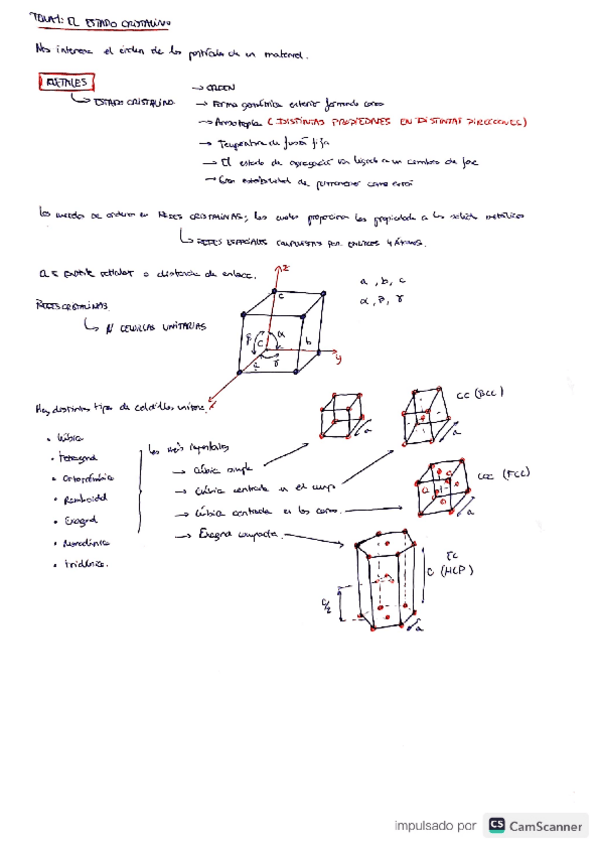 TEMA 1: EL ESTADO CRISTALINO
Nos interesa el orden de las partículas de un material.
METALES
→ ORDEN
↳ ESTADO CRISTALINO → Forma geométrica exterior formando caras
→ Anisotropía (DISTINTAS PROPIEDADES EN DISTINTAS DIRECCIONES)
→ Temperatura de fusión fija
→ El estado de agregación va ligado a un cambio de fase
→ Gran estabilidad de permanecer como
Los metales se ordenan en REDES CRISTALINAS, las cuales proporcionan las propiedades a los sólidos metálicos
↳ REDES ESPACIALES COMPUESTAS POR ENLACES Y ÁTOMOS.
a ≡ reticular o distancia de enlace.
z
c
a, b, c
α, β, γ
REDES CRISTALINAS
↳ N CELDILLAS UNITARIAS
β
α
c
b
a
γ
y
x
Hay distintos tipos de celdillas unitarias
CC (BCC)
a
a
• Cúbica
Los más importantes
• Tetragonal
→ cúbica simple
• Ortorrómbica
→ Cúbica centrada en el cuerpo
CCC (FCC)
a
• Romboidal
→ Cúbica centrada en las caras
• Exagonal
→ Exagonal compacta
• Monoclínica
• Triclínica.
C (HCP)
c/2
a
impulsado por CS CamScanner